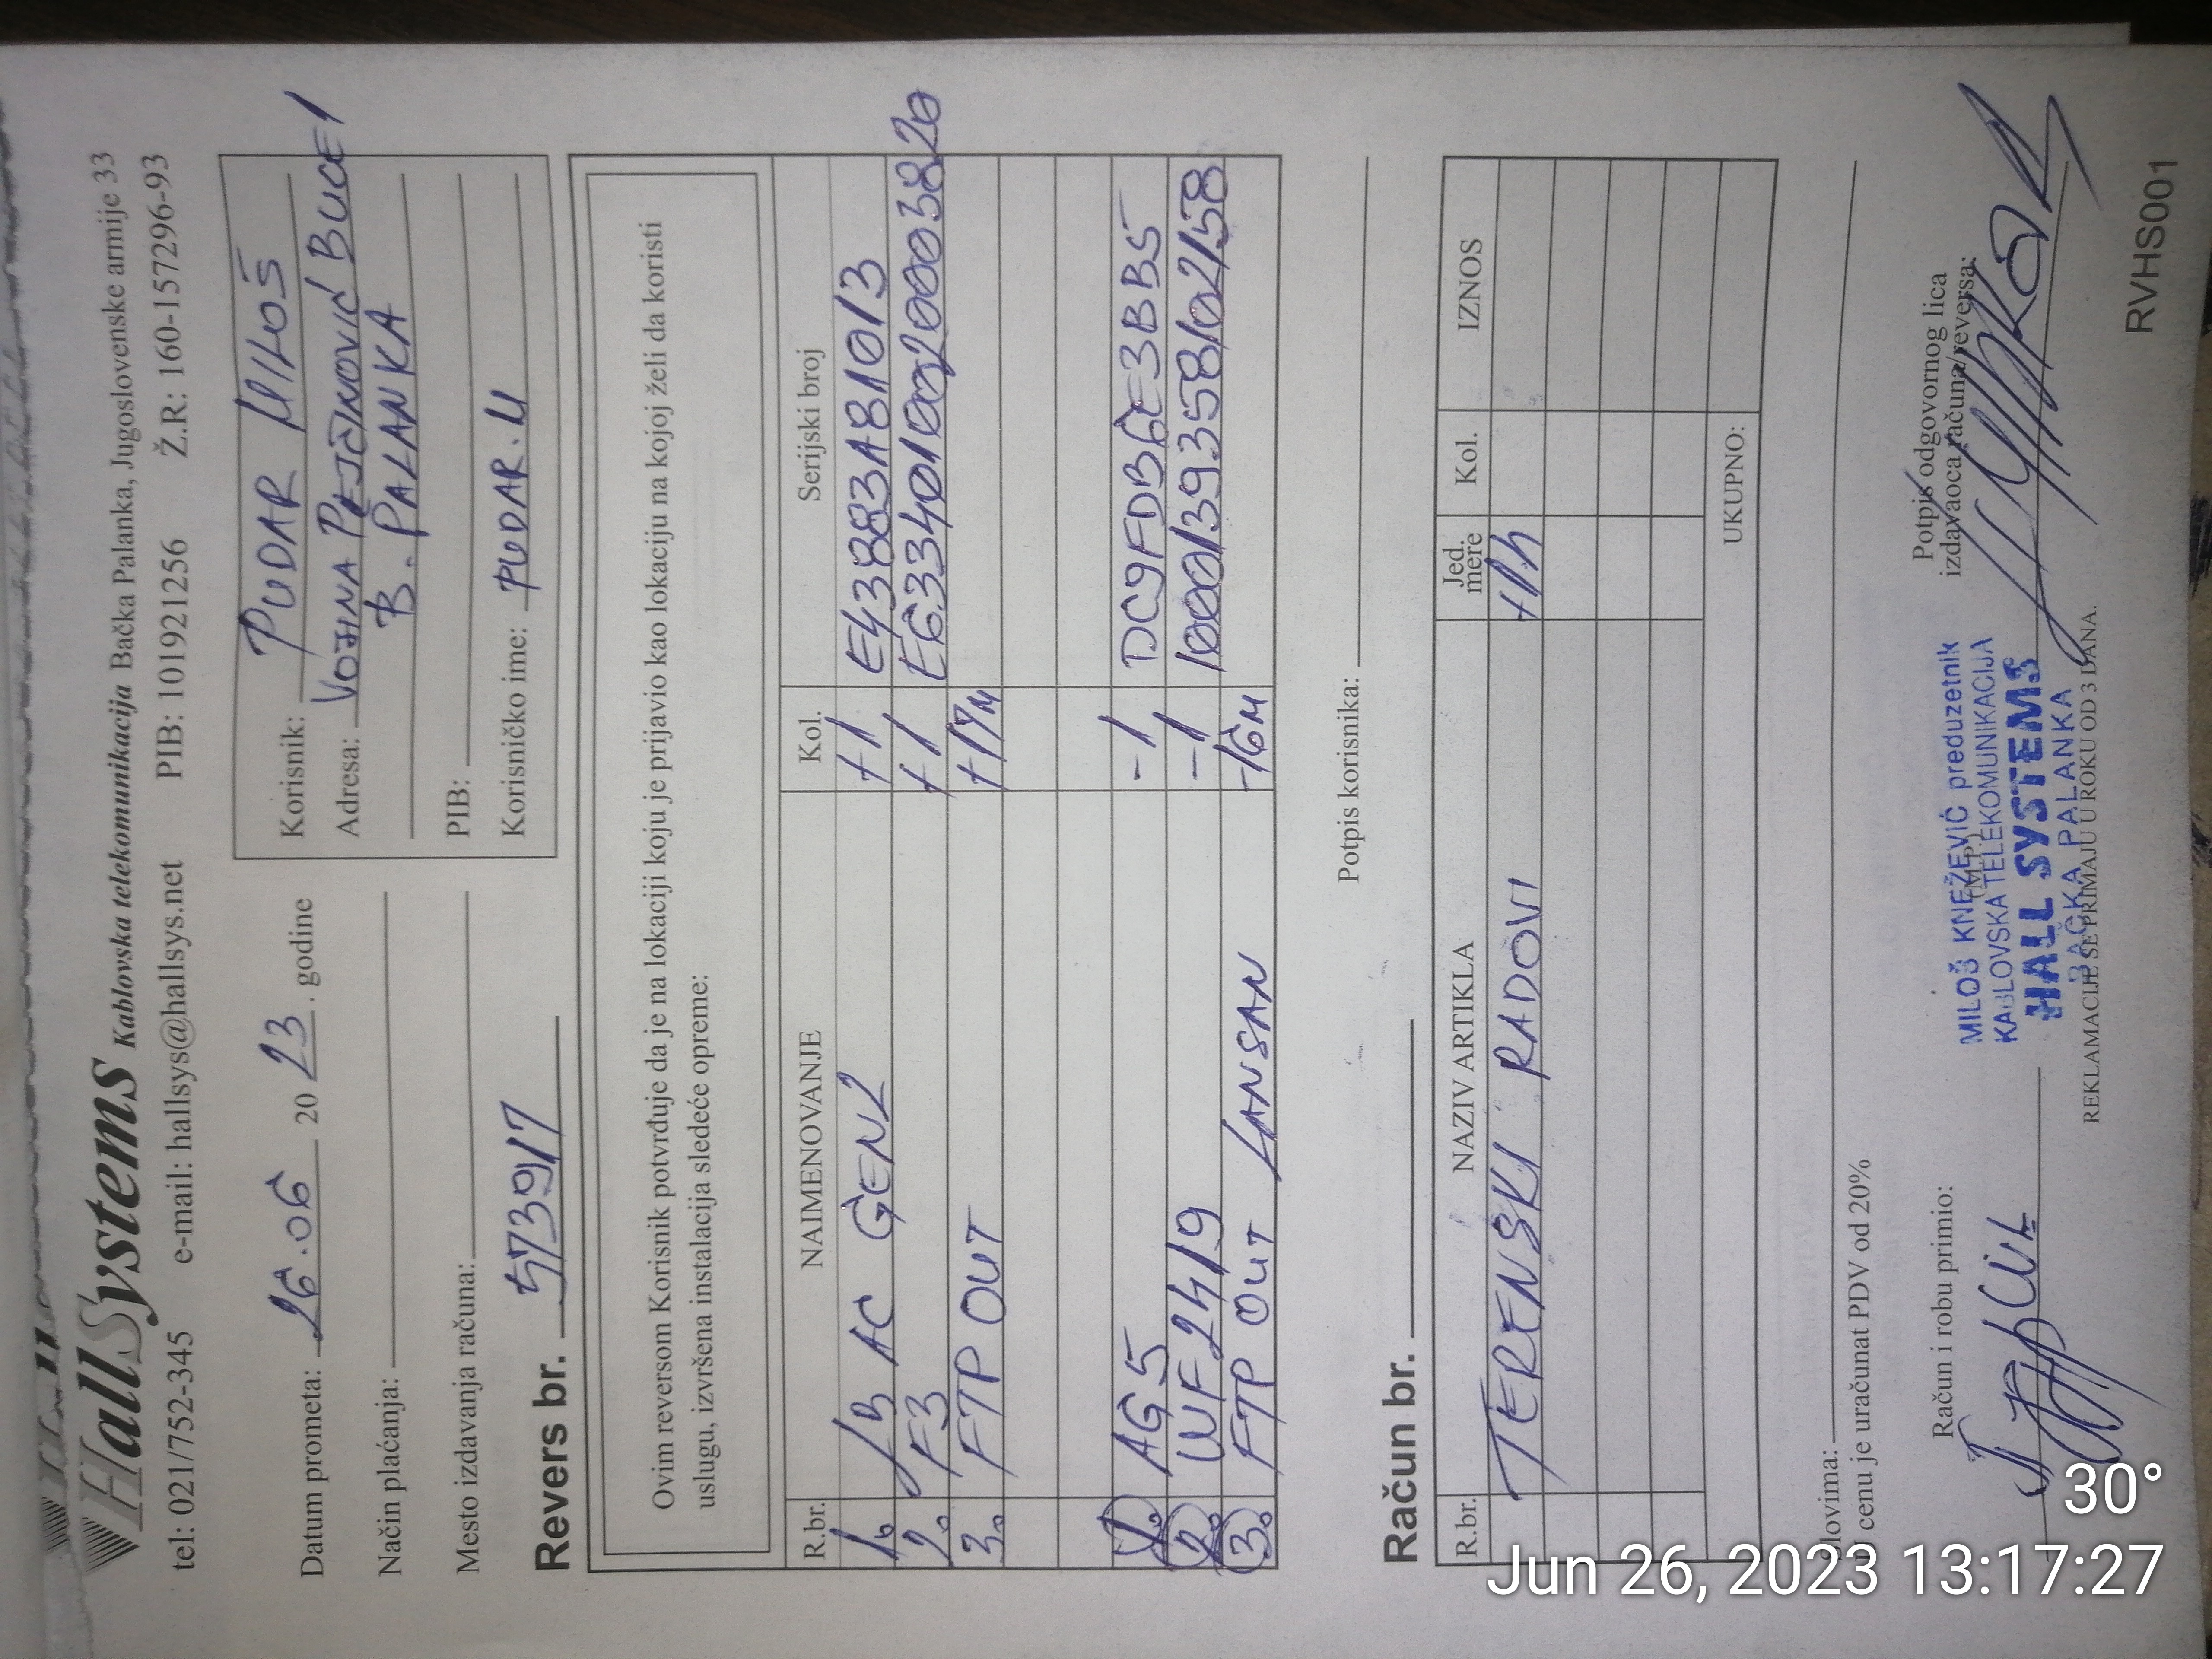 HallSystems Kablovska telekomunikacija Bačka Palanka, Jugoslovenske armije 33
tel: 021/752-345 e-mail: hallsys@hallsys.net PIB: 101921256 Ž.R: 160-157296-93
Datum prometa: 26.06 2023. godine
Način plaćanja:
Mesto izdavanja računa:
Revers br. 5739/17
Korisnik: PUDAR MILOŠ
Adresa: VOJINA PEJČINOVIĆ BUCE 1
B. PALANKA
PIB:
Korisničko ime: PUDAR.M
Ovim reversom Korisnik potvrđuje da je na lokaciji koju je prijavio kao lokaciju na kojoj želi da koristi
uslugu, izvršena instalacija sledeće opreme:
R.br. NAIMENOVANJE Kol. Serijski broj
1. LB AC GEN2 +1 E43883A81013
2. F3 +1
3. FTP OUT +17M
1. AG5 -1 DC9FDB6E3BB5
2. WF2419 -1
3. FTP OUT LANSAN -16M
Potpis korisnika:
Račun br.
R.br. NAZIV ARTIKLA Jed. mere Kol. IZNOS
TERENSKI RADOVI +1h
UKUPNO:
Slovima:
U cenu je uračunat PDV od 20%
Račun i robu primio:
Potpis odgovornog lica
izdavaoca računa/reversa:
(M.P.)
MILOŠ KNEŽEVIĆ preduzetnik
KABLOVSKA TELEKOMUNIKACIJA
HALL SYSTEMS
BAČKA PALANKA
REKLAMACIJE SE PRIMAJU U ROKU OD 3 DANA.
RVHS001
30°
Jun 26, 2023 13:17:27